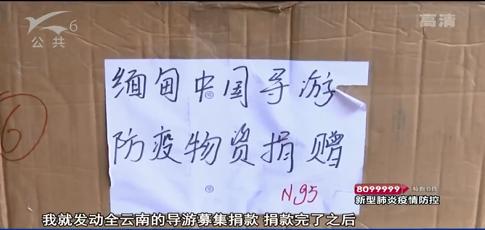 6
公共
高清
缅甸中国导游
防疫物资捐赠
N95
8099999
新型肺炎疫情防控
我就发动全云南的导游募集捐款 捐款完了之后